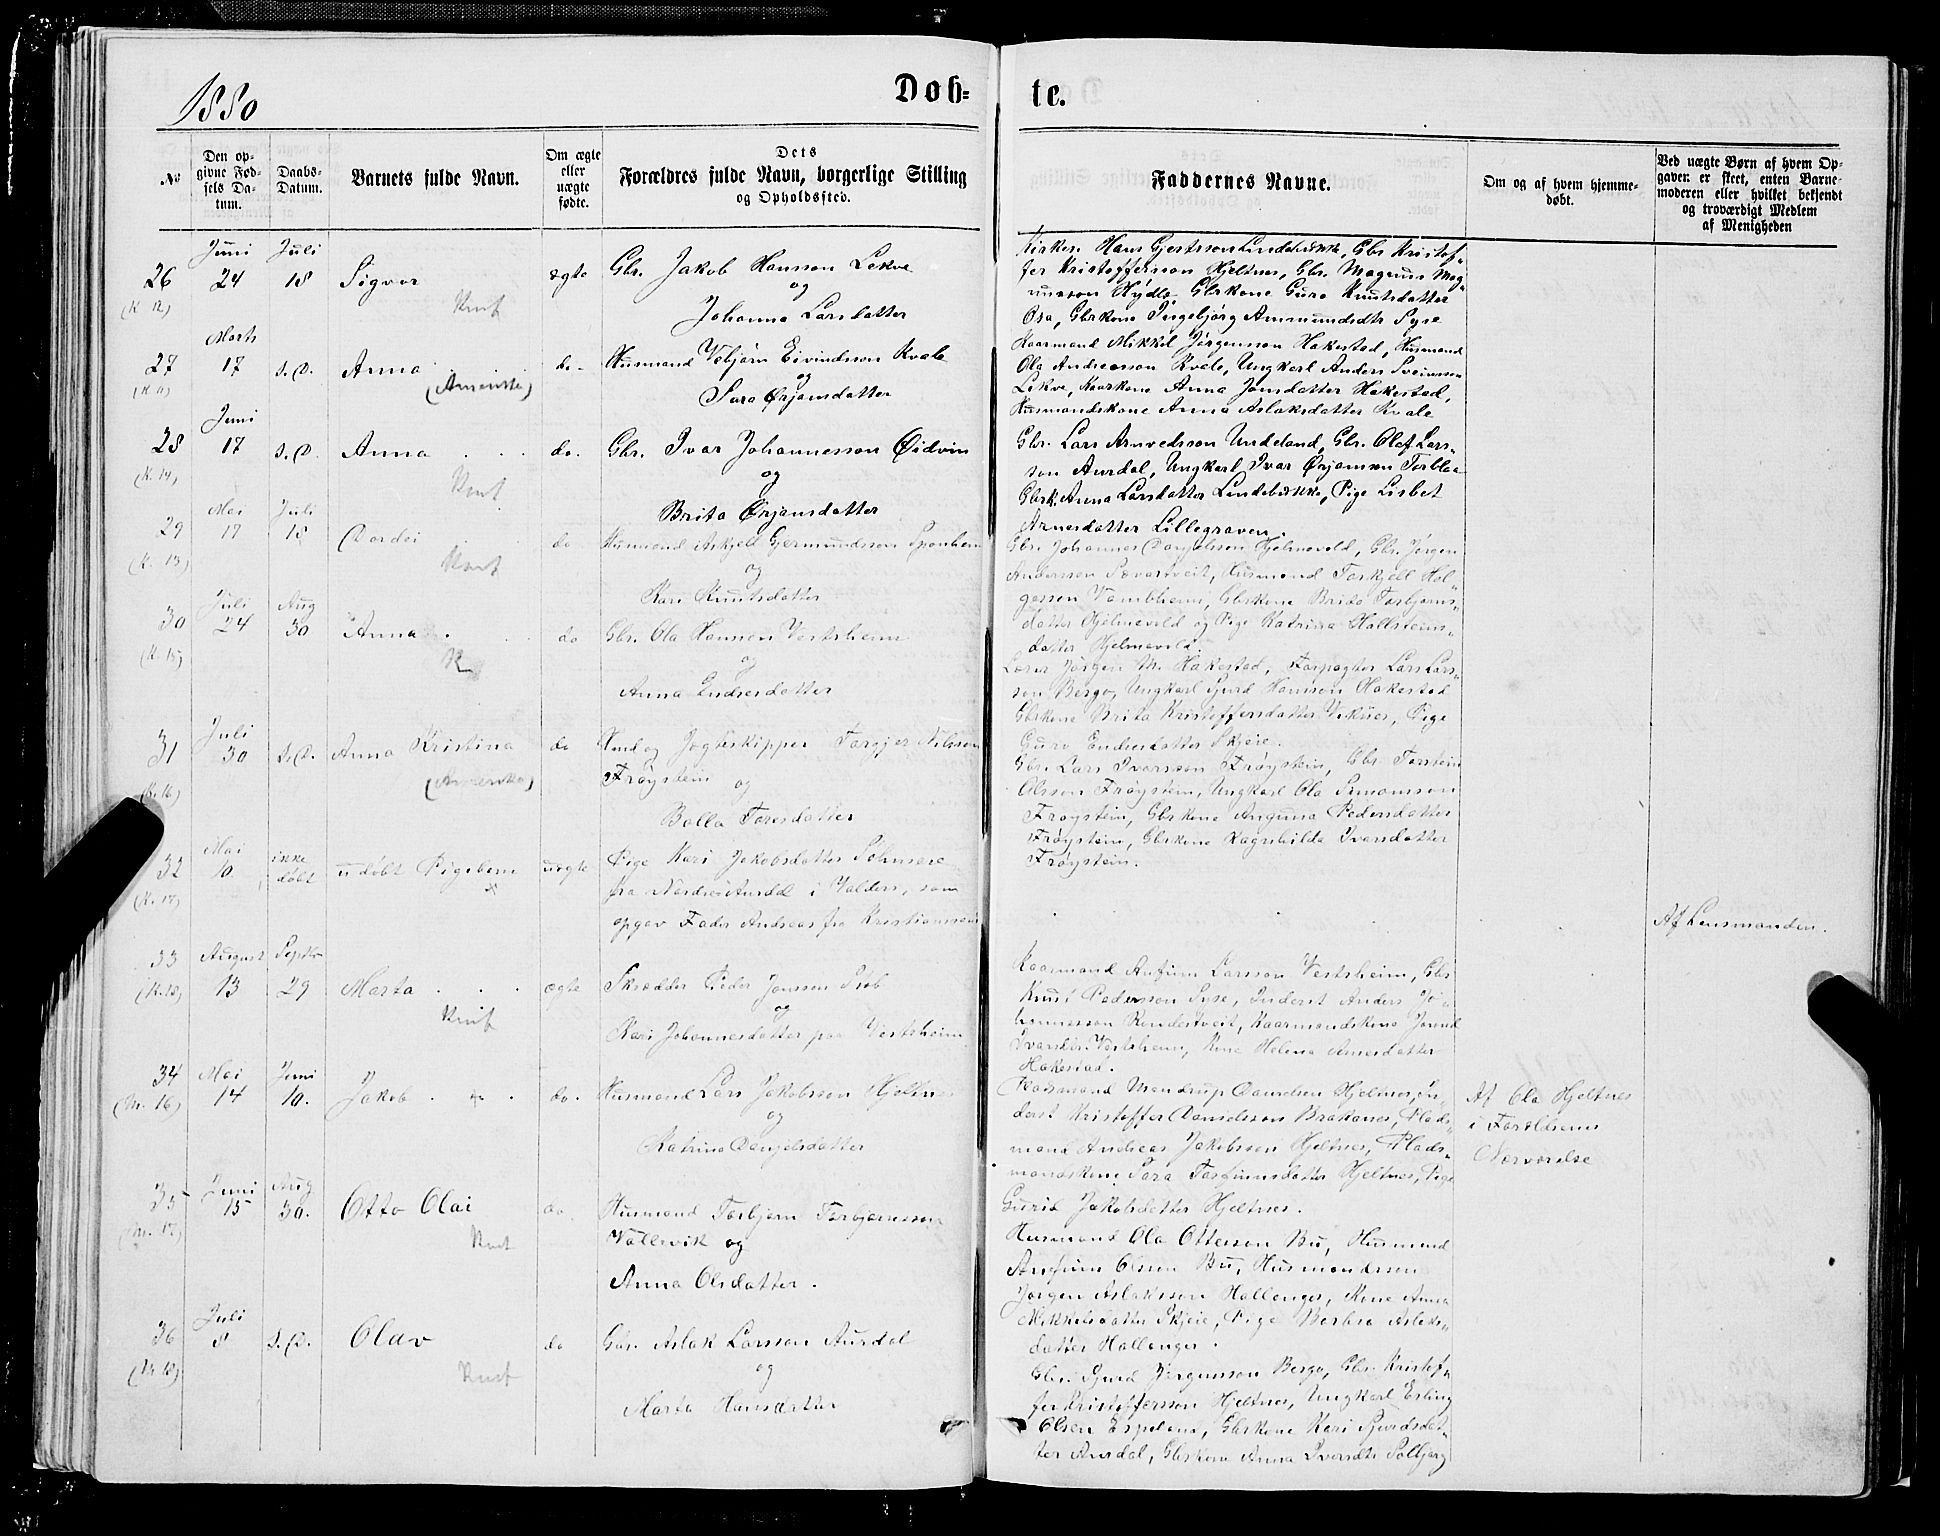 1880
Døb-
te.
No
Den op-
givne Fød-
sels Da-
tum.
Daabs-
Datum.
Barnets fulde Navn.
Om ægte
eller
uægte
fødte.
Dets
Forældres fulde Navn, borgerlige Stilling
og Opholdssted.
Faddernes Navne.
Om og af hvem hjemme-
døbt.
Ved uægte Børn af hvem Op-
gaven er skeet, enten Barne-
moderen eller hvilket bekjendt
og troværdigt Medlem
af Menigheden
26
(K. 12)
Juni
24
Juli
18
Sigvor
ægte
Gbr. Jakob Hansson Lekve
og
Johanna Larsdatter
Kirkes. Hans Gjertsson Lindebrekke, Gbr. Kristof-
fer Kristoffersson Hjeltnes, Gbr. Magnus Mag-
nusson Hydle, Gbrkone Guro Knutsdatter
Osa, Gbrkone Ingebjørg Ammundsdtr Syse
27
Marts
17
s. D.
Anna
(Amerika)
do.
Husmand Vebjørn Eivindsson Kvale
og
Sara Ørjansdatter
Kaarmand Mikkel Jørgensson Hakestad, Husmand
Ola Andreasson Kvale, Ungkarl Anders Sveinsson
Lekve, Kaarkone Anna Jonsdatter Hakestad,
Husmandskone Anna Aslaksdatter Kvale
28
(K. 14)
Juni
17
s. D.
Anna
do.
Gbr. Ivar Johannesson Øidvin
og
Brita Ørjansdatter
Gbr. Lars Arnvedsson Undeland, Gbr. Olaf Lars-
son Aurdal, Ungkarl Ivar Ørjansson Torblaa
Gbrk. Anna Larsdatter Lindebrekke, Pige Lisbet
Arnesdatter Lillegraven.
29
(K. 13)
Mai
17
Juli
18
Dordei
do
Husmand Askjell Germundsson Sponheim
og
Kari Knutsdatter
Gbr. Johannes Danjelsson Hjelmevold, Gbr. Jørgen
Andersson Sævartveit, Husmand Torkjell Hol-
gersen Vambheim, Gbrkone Brita Torbjørns-
datter Hjelmevold og Pige Katrina Hallsteins-
datter Hjelmevold.
30
(K. 15)
Juli
24
Aug
30
Anna
do
Gbr. Ola Hansen Vestrheim
og
Anna Endresdatter
Lærer Jørgen M. Hakestad, Forpagter Lars Lars-
son Bergo, Ungkarl Sjurd Hansson Hakestad
Gbrkone Brita Kristoffersdatter Viknes, Pige
Guro Endresdatter Skjeie.
31
(K. 16)
Juli
30
s. D.
Anna Kristina
(Amerika)
do
Hmd og Jagteskipper Torgjer Nilsson
Frøystein
og
Balla Toresdatter
Gbr. Lars Ivarsson Frøystein, Gbr. Torstein
Olsson Frøystein, Ungkarl Ola Simonsson
Frøystein, Gbrkone Anguna Pedersdatter
Frøystein, Gbrkone Ragnhilda Ivarsdatter
Frøystein.
32
(K. 17)
Mai
10
ikke
døbt
udøbt Pigebarn
uægte
Pige Kari Jakobsdatter
fra Nordre Aurdal i Valders, som
opgav Fader Andreas fra Kristianssand
Af Lensmanden.
33
(K. 18)
August
13
Septbr
29
Marta
ægte
Skrædder Peder Jonsson
og
Kari Johannesdatter paa Vestrheim
Kaarmand Anfinn Larsson Vestrheim, Gbr
Knut Pedersson Syse, Inderst Anders Jo-
hannesson Rondestveit, Kaarmandskone Jorend
Ivarsdtr. Vestrheim, Kone Helena Arnesdatter
Hakestad.
34
(M. 16)
Mai
14
Juni
10.
Jakob
do.
Husmand Lars Jakobsson Hjeltnes
og
Katrina Danjelsdatter
Kaarmand Mandrup Danielsen Hjeltnes, In-
derst Kristoffer Danielsson Brakanes, Plads-
mand Andreas Jakobsson Hjeltnes, Plads-
mandskone Sara Torfinnsdatter Hjeltnes, Pige
Gurid Jakobsdatter Hjeltnes.
Af Ola Hjeltnes
i Forældrenes
Nærværelse
35
(M. 17)
Juni
15
Aug
30.
Otto Olai
do
Husmand Torbjørn Torbjørnsson
Vallevik og
Anna Olsdatter.
Husmand Ola Ottersen Bu, Husmand
Anfinn Olsson Bu, Husmandssøn
Jørgen Aslaksson Hallanger, Kone Anna
Mikkelsdatter Skjeie, Pige Barbra Aslaks-
datter Hallanger.
36
(M. 18)
Juli
8
s. D.
Olav
do
Gbr. Aslak Larsson Aurdal
og
Marta Hansdatter
Gbr. Sjurd Jørgensson Bergo, Gbr. Kristof-
fer Kristoffersson Hjeltnes, Ungkarl Erling
Olsen Espeland, Gbrkone Kari Sjurdsdat-
ter Aurdal, Gbrkone Anna Ivarsdtr Solbjørg